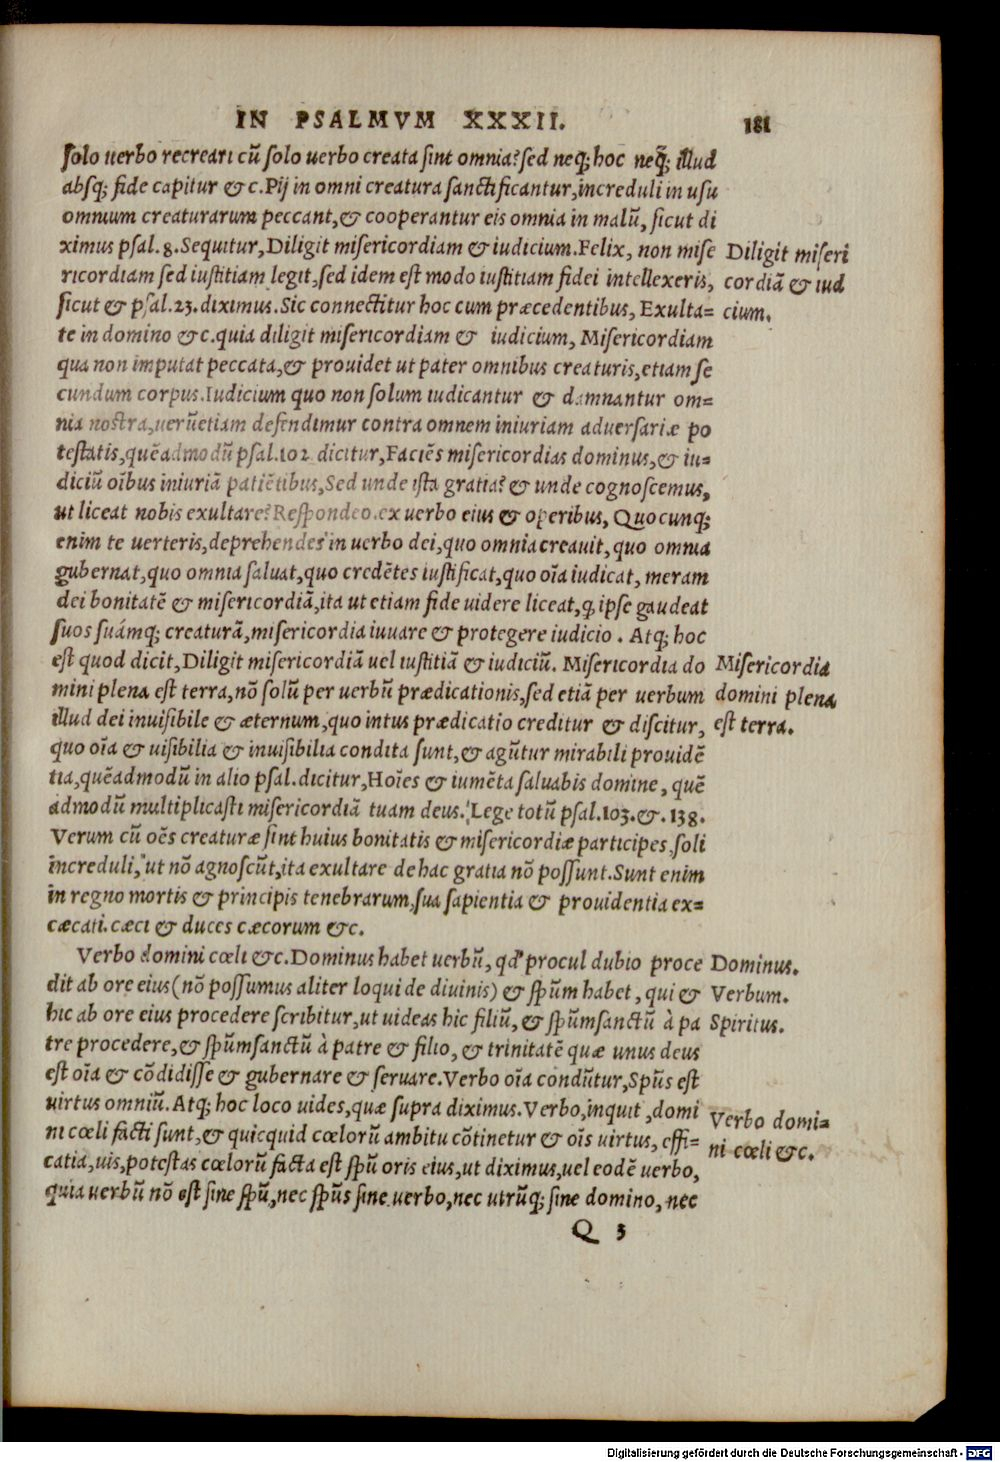 IN PSALMVM XXXII. 181
solo uerbo recreari cũ solo uerbo creata sint omnia? sed neq; hoc neq̃; illud
absq; fide capitur & c. Pij in omni creatura sanctificantur, increduli in usu
omnium creaturarum peccant, & cooperantur eis omnia in malũ, sicut di
ximus psal. 8. Sequitur, Diligit misericordiam & iudicium. Felix, non mise
ricordiam sed iustitiam legit, sed idem est modo iustitiam fidei intellexeris,
sicut & psal. 23. diximus. Sic connectitur hoc cum præcedentibus, Exulta=
te in domino & c. quia diligit misericordiam & iudicium, Misericordiam
qua non imputat peccata, & prouidet ut pater omnibus creaturis, etiam se
cundum corpus. Iudicium quo non solum iudicantur & damnantur om=
nia nostra, uerũetiam defendimur contra omnem iniuriam aduersariæ po
testatis, quẽadmodũ psal. 102 dicitur, Faciẽs misericordias dominus, & iu=
diciũ oĩbus iniuriã patiẽtibus, Sed unde ista gratia? & unde cognoscemus,
ut liceat nobis exultare? Respondeo. ex uerbo eius & operibus, Quocunq;
enim te uerteris, deprehendes in uerbo dei, quo omnia creauit, quo omnia
gubernat, quo omnia saluat, quo credẽtes iustificat, quo oĩa iudicat, meram
dei bonitatẽ & misericordiã, ita ut etiam fide uidere liceat, q̃ ipse gaudeat
suos suámq; creaturã, misericordia iuuare & protegere iudicio. Atq; hoc
est quod dicit, Diligit misericordiã uel iustitiã & iudiciũ. Misericordia do
mini plena est terra, nõ solũ per uerbũ prædicationis, sed etiã per uerbum
illud dei inuisibile & æternum, quo intus prædicatio creditur & discitur,
quo oĩa & uisibilia & inuisibilia condita sunt, & agũtur mirabili prouidẽ
tia, quẽadmodũ in alio psal. dicitur, Hoĩes & iumẽta saluabis domine, quẽ
admodũ multiplicasti misericordiã tuam deus. Lege totũ psal. 103. &. 138.
Verum cũ oẽs creaturæ sint huius bonitatis & misericordiæ participes, soli
increduli, ut nõ agnoscũt, ita exultare de hac gratia nõ possunt. Sunt enim
in regno mortis & principis tenebrarum, sua sapientia & prouidentia ex=
cæcati. cæci & duces cæcorum &c.
Verbo domini cœli &c. Dominus habet uerbũ, qđ procul dubio proce
dit ab ore eius (nõ possumus aliter loqui de diuinis) & sp̃um habet, qui &
hic ab ore eius procedere scribitur, ut uideas hic filiũ, & sp̃umsanctũ à pa
tre procedere, & sp̃umsanctũ à patre & filio, & trinitatẽ quæ unus deus
est oĩa & cõdidisse & gubernare & seruare. Verbo oĩa condũtur, Sp̃us est
uirtus omniũ. Atq; hoc loco uides, quæ supra diximus. Verbo, inquit, domi
ni cœli facti sunt, & quicquid cœlorũ ambitu cõtinetur & oĩs uirtus, effi=
catia, uis, potestas cœlorũ facta est sp̃u oris eius, ut diximus, uel eodẽ uerbo,
quia uerbũ nõ est sine sp̃u, nec sp̃us sine uerbo, nec utrũq; sine domino, nec
Q 3
Diligit miseri
cordiã & iud
cium.
Misericordia
domini plena
est terra.
Dominus.
Verbum.
Spiritus.
Verbo domi=
ni cœli &c.
Digitalisierung gefördert durch die Deutsche Forschungsgemeinschaft - DFG